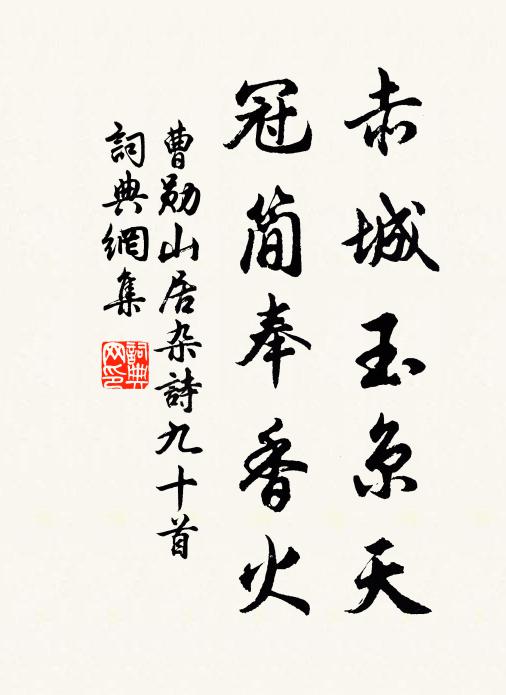 赤城玉京天
冠简奉香火
曹勛山居杂詩九十首
詞典網集
詞典网印